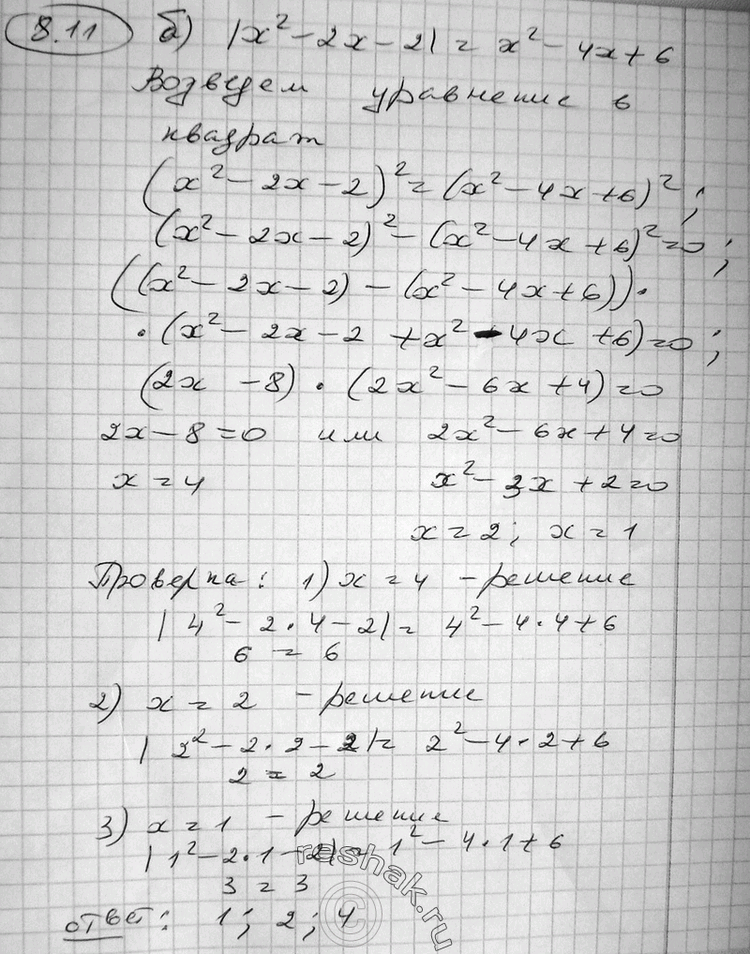 8.11 б) |x² - 2x - 2| = x² - 4x + 6
Возведем уравнение в
квадрат
(x² - 2x - 2)² = (x² - 4x + 6)²;
(x² - 2x - 2)² - (x² - 4x + 6)² = 0;
((x² - 2x - 2) - (x² - 4x + 6)) ·
· (x² - 2x - 2 + x² - 4x + 6) = 0;
(2x - 8) · (2x² - 6x + 4) = 0
2x - 8 = 0 или 2x² - 6x + 4 = 0
x = 4 x² - 3x + 2 = 0
x = 2; x = 1
Проверка: 1) x = 4 - решение
|4² - 2·4 - 2| = 4² - 4·4 + 6
6 = 6
2) x = 2 - решение
|2² - 2·2 - 2| = 2² - 4·2 + 6
2 = 2
3) x = 1 - решение
|1² - 2·1 - 2| = 1² - 4·1 + 6
3 = 3
ответ: 1; 2; 4
reshak.ru
©